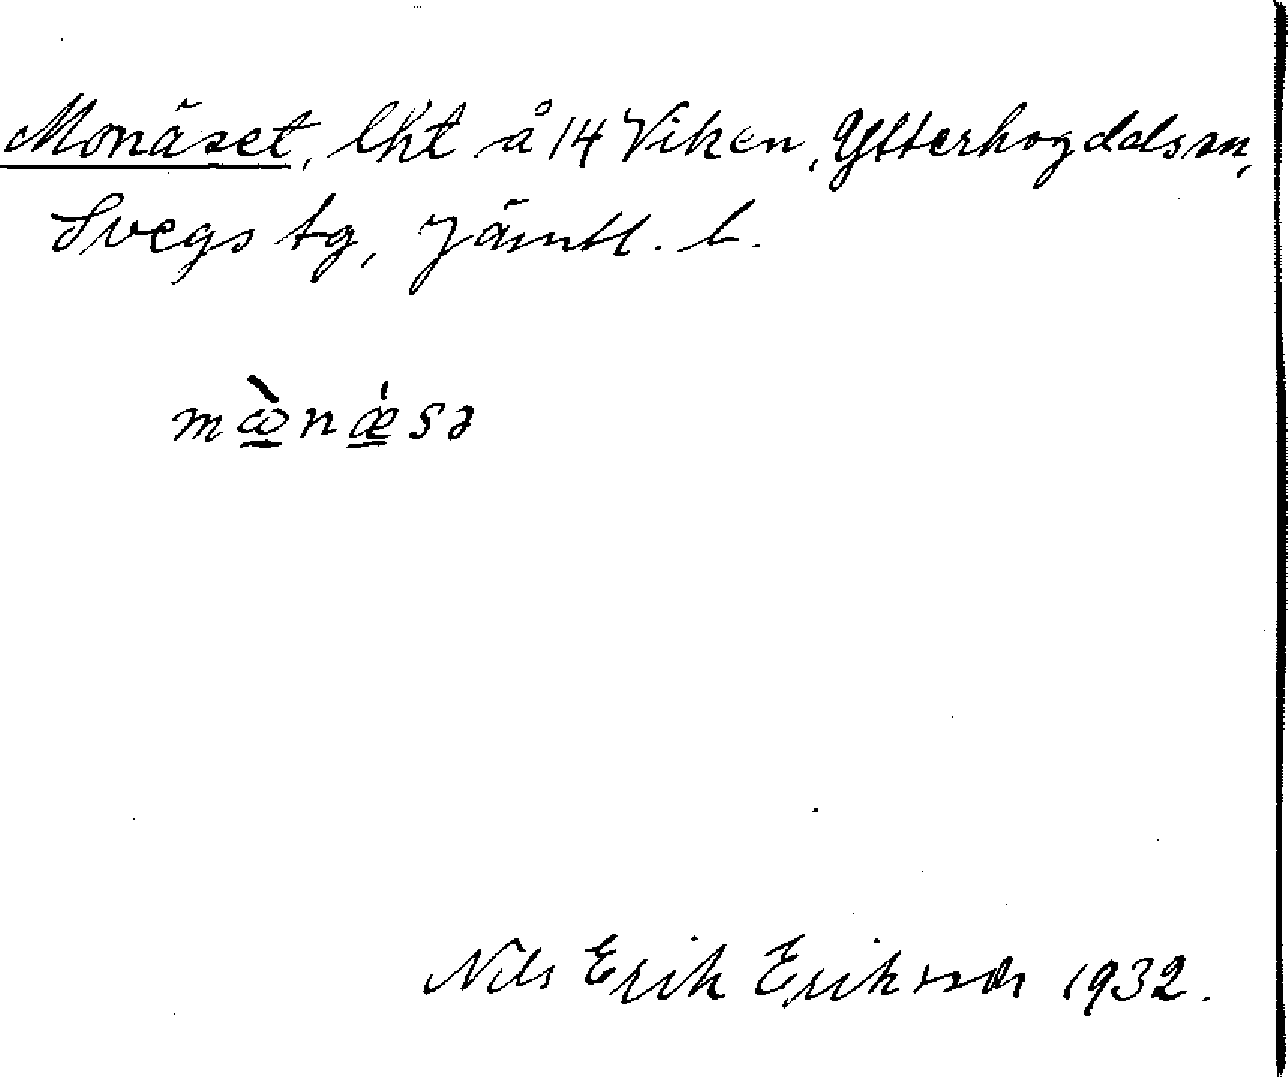 Monäset, lht å 14 Viken, Ytterhogdals sn,
Svegs tg, Jämtl. l.
mæ̲̀nǽ̲sə
Nils Erik Eriksson 1932.